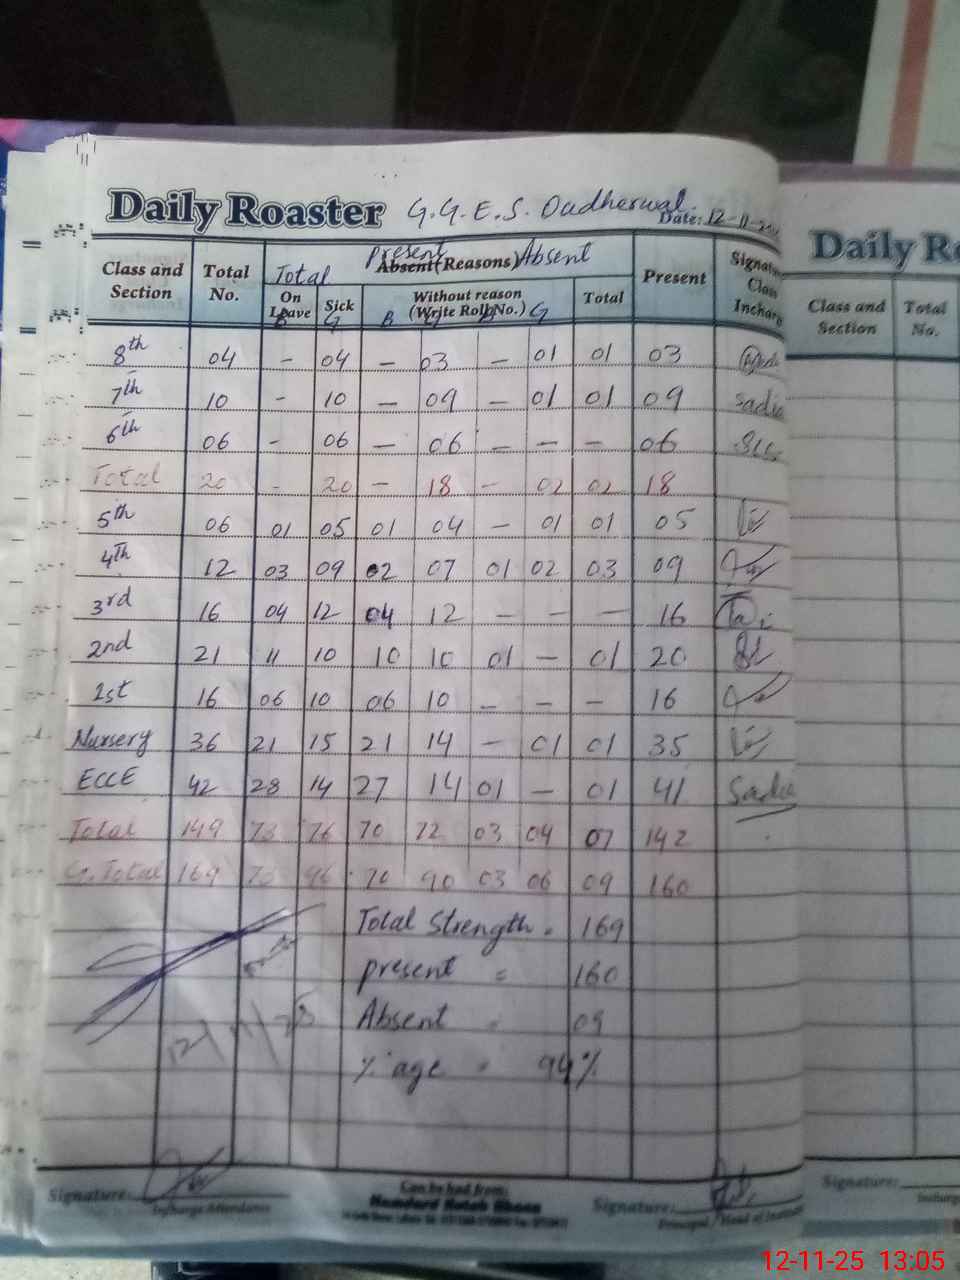 Daily Roaster G.G.E.S. Oudherwal
Date: 12-11-
Class and Section Total No. Total Present Absent (Reasons) Absent Present Signature Class Incharge
On Leave Sick Without reason (Write Roll No.) Total
B G B G B G
8th 04 - 04 - 03 - 01 01 03
7th 10 - 10 - 09 - 01 01 09 Sadia
6th 06 - 06 - 06 - - - 06
Total 20 - 20 - 18 - 02 02 18
5th 06 01 05 01 04 - 01 01 05
4th 12 03 09 02 07 01 02 03 09
3rd 16 04 12 04 12 - - - 16
2nd 21 11 10 10 10 01 - 01 20
1st 16 06 10 06 10 - - - 16
Nursery 36 21 15 21 14 - 01 01 35
ECCE 42 28 14 27 14 01 - 01 41 Sadia
Total 149 73 76 70 72 03 04 07 142
G.Total 169 73 96 70 90 03 06 09 160
Total Strength = 169
present = 160
Absent = 09
% age = 94%
12/11/25
Signature:
Incharge Attendance
Can be had from:
Hamdard Kutab Khana
Signature:
Principal / Head of Institute
Daily Ro
Class and Section Total No.
Signature:
12-11-25 13:05